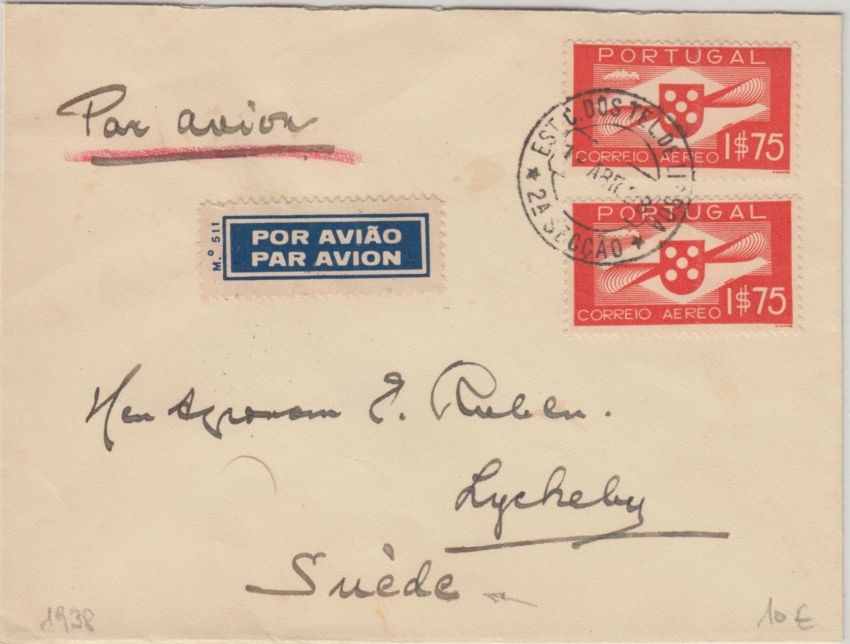 PORTUGAL
CORREIO AÉREO 1$75
Par avion
EST. C. DOS TEL. DE LISBOA
ABR 38
* 2A SECÇÃO *
PORTUGAL
CORREIO AÉREO 1$75
M.º 511
POR AVIÃO
PAR AVION
Herr Agronom E. Ruben.
Lyckeby
Suède
1938
10 €